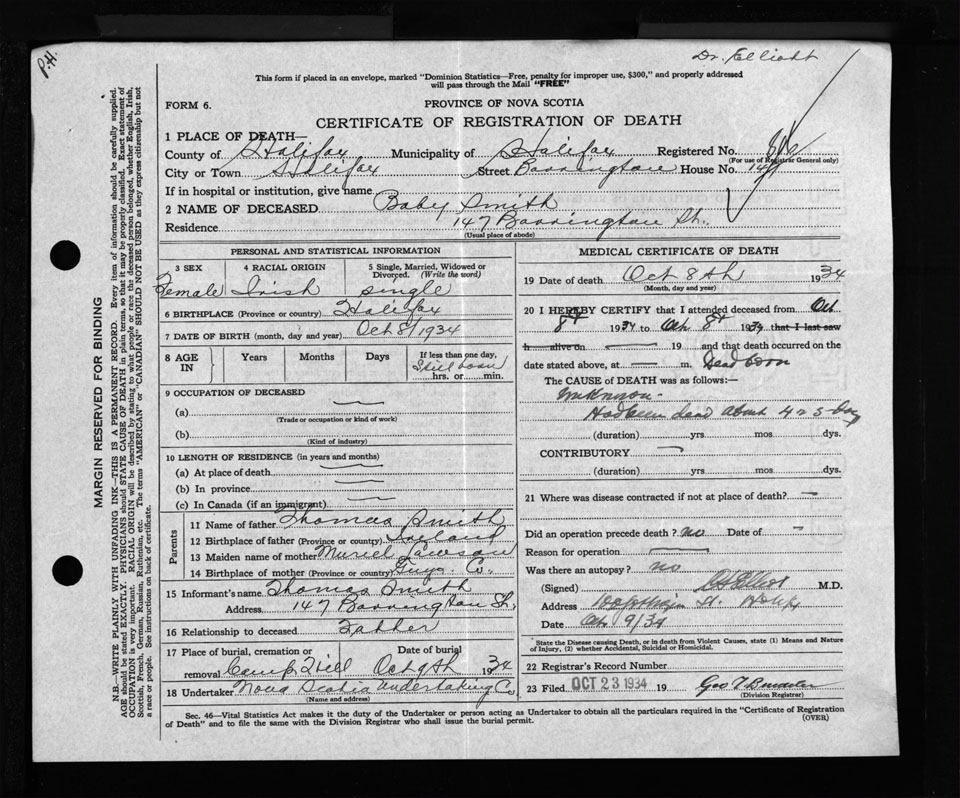 P.H.
Dr. Elliott
This form if placed in an envelope, marked "Dominion Statistics—Free, penalty for improper use, $300," and properly addressed
will pass through the Mail "FREE"
FORM 6.
PROVINCE OF NOVA SCOTIA
CERTIFICATE OF REGISTRATION OF DEATH
1 PLACE OF DEATH—
County of Halifax Municipality of Halifax Registered No.
(For use of Registrar General only)
City or Town Halifax Street Barrington House No. 147
If in hospital or institution, give name
2 NAME OF DECEASED Baby Smith
Residence 147 Barrington St.
(Usual place of abode)
PERSONAL AND STATISTICAL INFORMATION
3 SEX 4 RACIAL ORIGIN 5 Single, Married, Widowed or Divorced. (Write the word)
Female Irish single
6 BIRTHPLACE (Province or country) Halifax
7 DATE OF BIRTH (month, day and year) Oct 8/1934
8 AGE IN Years Months Days If less than one day,
Still born
hrs. or min.
9 OCCUPATION OF DECEASED
(a) —
(Trade or occupation or kind of work)
(b)
(Kind of industry)
10 LENGTH OF RESIDENCE (in years and months)
(a) At place of death —
(b) In province —
(c) In Canada (if an immigrant) —
Parents
11 Name of father Thomas Smith
12 Birthplace of father (Province or country) Ireland
13 Maiden name of mother Muriel Lawson
14 Birthplace of mother (Province or country) Guys. Co.
15 Informant's name Thomas Smith
Address 147 Barrington St.
16 Relationship to deceased Father
17 Place of burial, cremation or removal Camp Hill Date of burial Oct 9th 1934
18 Undertaker Nova Scotia Undertaking Co
(Name and address)
MEDICAL CERTIFICATE OF DEATH
19 Date of death Oct 8th 1934
(Month, day and year)
20 I HEREBY CERTIFY that I attended deceased from Oct
8th 1934 to Oct 8th 1934 that I last saw
h alive on — 19 and that death occurred on the
date stated above, at — m. Dead born
The CAUSE OF DEATH was as follows:—
Unknown.
Had been dead about 4 or 5 days
(duration) yrs mos dys.
CONTRIBUTORY —
(duration) yrs mos dys.
21 Where was disease contracted if not at place of death? —
Did an operation precede death? no Date of —
Reason for operation —
Was there an autopsy? no
(Signed) Elliott M.D.
Address St. Halifax
Date Oct 9/34
State the Disease causing Death, or in death from Violent Causes, state (1) Means and Nature
of Injury, (2) whether Accidental, Suicidal or Homicidal.
22 Registrar's Record Number
23 Filed OCT 23 1934 19 Geo
(Division Registrar)
Sec. 46—Vital Statistics Act makes it the duty of the Undertaker or person acting as Undertaker to obtain all the particulars required in the "Certificate of Registration
of Death" and to file the same with the Division Registrar who shall issue the burial permit.
(OVER)
MARGIN RESERVED FOR BINDING
N.B.—WRITE PLAINLY WITH UNFADING INK—THIS IS A PERMANENT RECORD. Every item of information should be carefully supplied.
AGE should be stated EXACTLY. PHYSICIANS should STATE CAUSE OF DEATH in plain terms, so that it may be properly classified. Exact statement of
OCCUPATION is very important. RACIAL ORIGIN will be described by stating to what people or race the deceased person belonged, whether English, Irish,
Scottish, French, German, Russian, Ruthenian, etc. The terms "AMERICAN" or "CANADIAN" SHOULD NOT BE USED as they express citizenship but not
a race or people. See instructions on back of certificate.